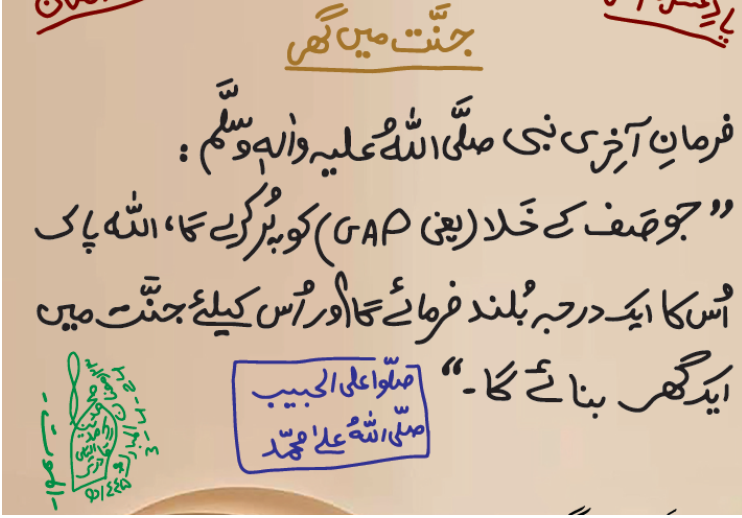 جنَّت میں گھر
فرمانِ آخِری نبی صلَّی اللہُ علیہ واٰلہٖ وسلَّم :
”جو صَف کے خَلا (یعنی GAP) کو پُر کرے گا، اللہ پاک
اُس کا ایک درجہ بُلند فرمائے گا اور اُس کیلئے جنَّت میں
ایک گھر بنائے گا۔“
صلُّوا علی الحبیب
صلَّی اللہُ علیٰ محمَّد